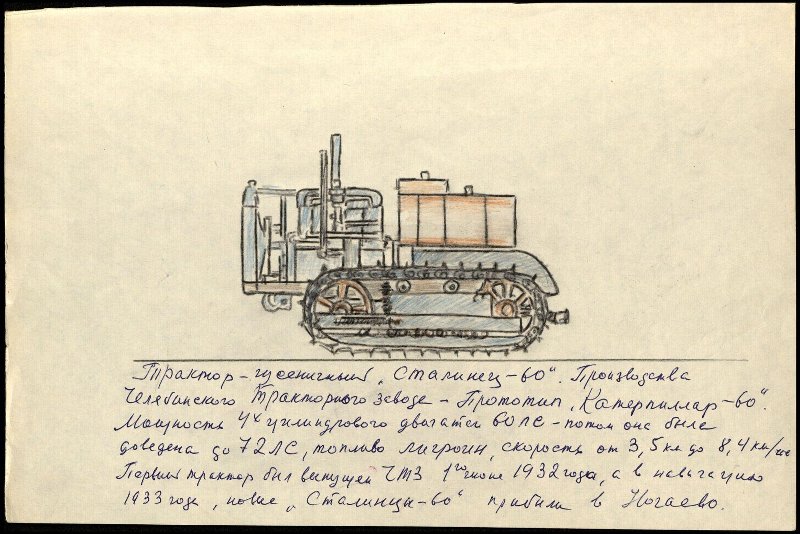 Трактор - гусеничный „Сталинец-60". Производства
Челябинского Тракторного завода - Прототип „Катерпиллар-60".
Мощность 4х цилиндрового 60 ЛС - потом она была
доведена до 72 ЛС, топливо лигроин, скорость от 3,5 км до 8,4 км/час
Первый трактор был выпущен ЧТЗ 1го июня 1932 года, а в навигацию
1933 года, новые „Сталинцы-60" прибыли в Нагаево.